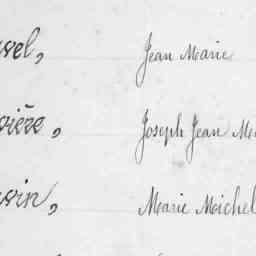 vel, Jean Marie
vière, Joseph Jean Ma
win, Marie Michel